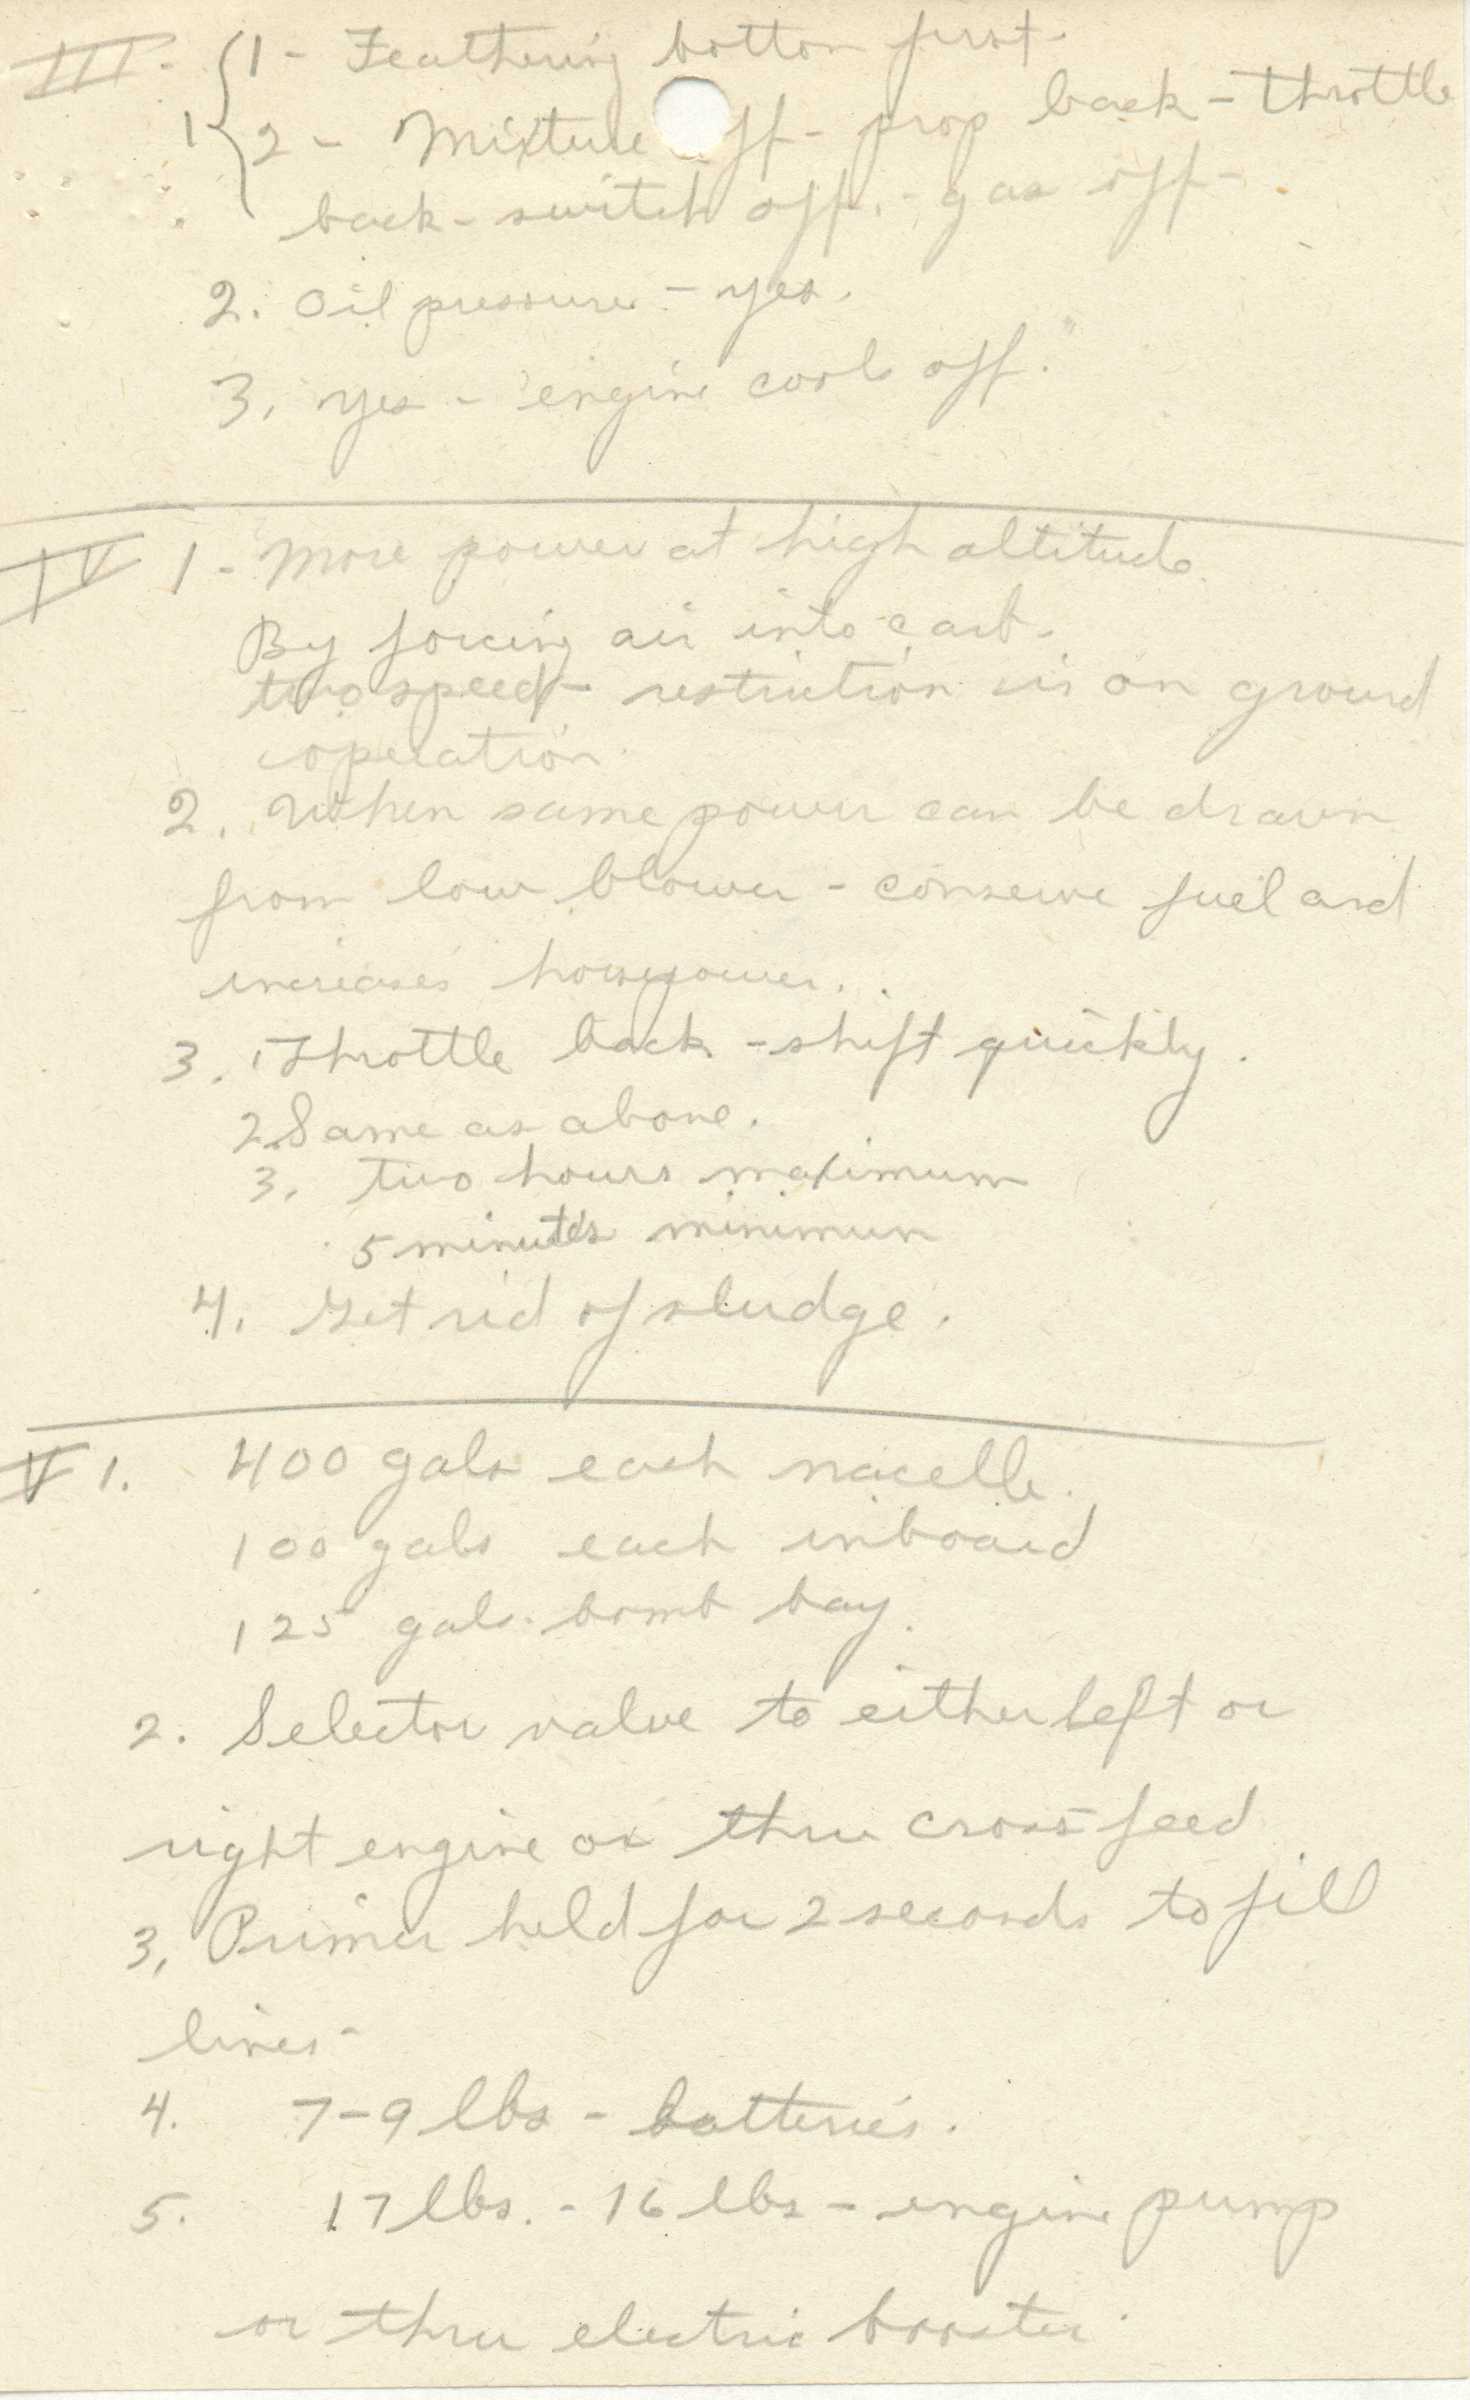 III. 1 - Feathering botton first -
1 2 - Mixture off - prop back - throttle
back - switch off. - gas off -
2. Oil pressure - yes.
3. yes - "engine cools off."
IV 1 - More power at high altitude.
By forcing air into carb.
two speed - restriction is on ground
operation.
2. When same power can be drawn
from low blower - conserve fuel and
increases horsepower.
3. 1 Throttle back - shift quickly.
2 Same as above.
3. two hours maximum
5 minutes minimun
4. Get rid of sludge.
V 1. 400 gals each nacelle.
100 gals each inboard
125 gals. bomb bay.
2. Selector valve to either left or
right engine or thru cross feed
3, Primer held for 2 seconds to fill
lines -
4. 7-9 lbs - batteries.
5. 17 lbs. - 16 lbs - engine pump
or thru electric booster.